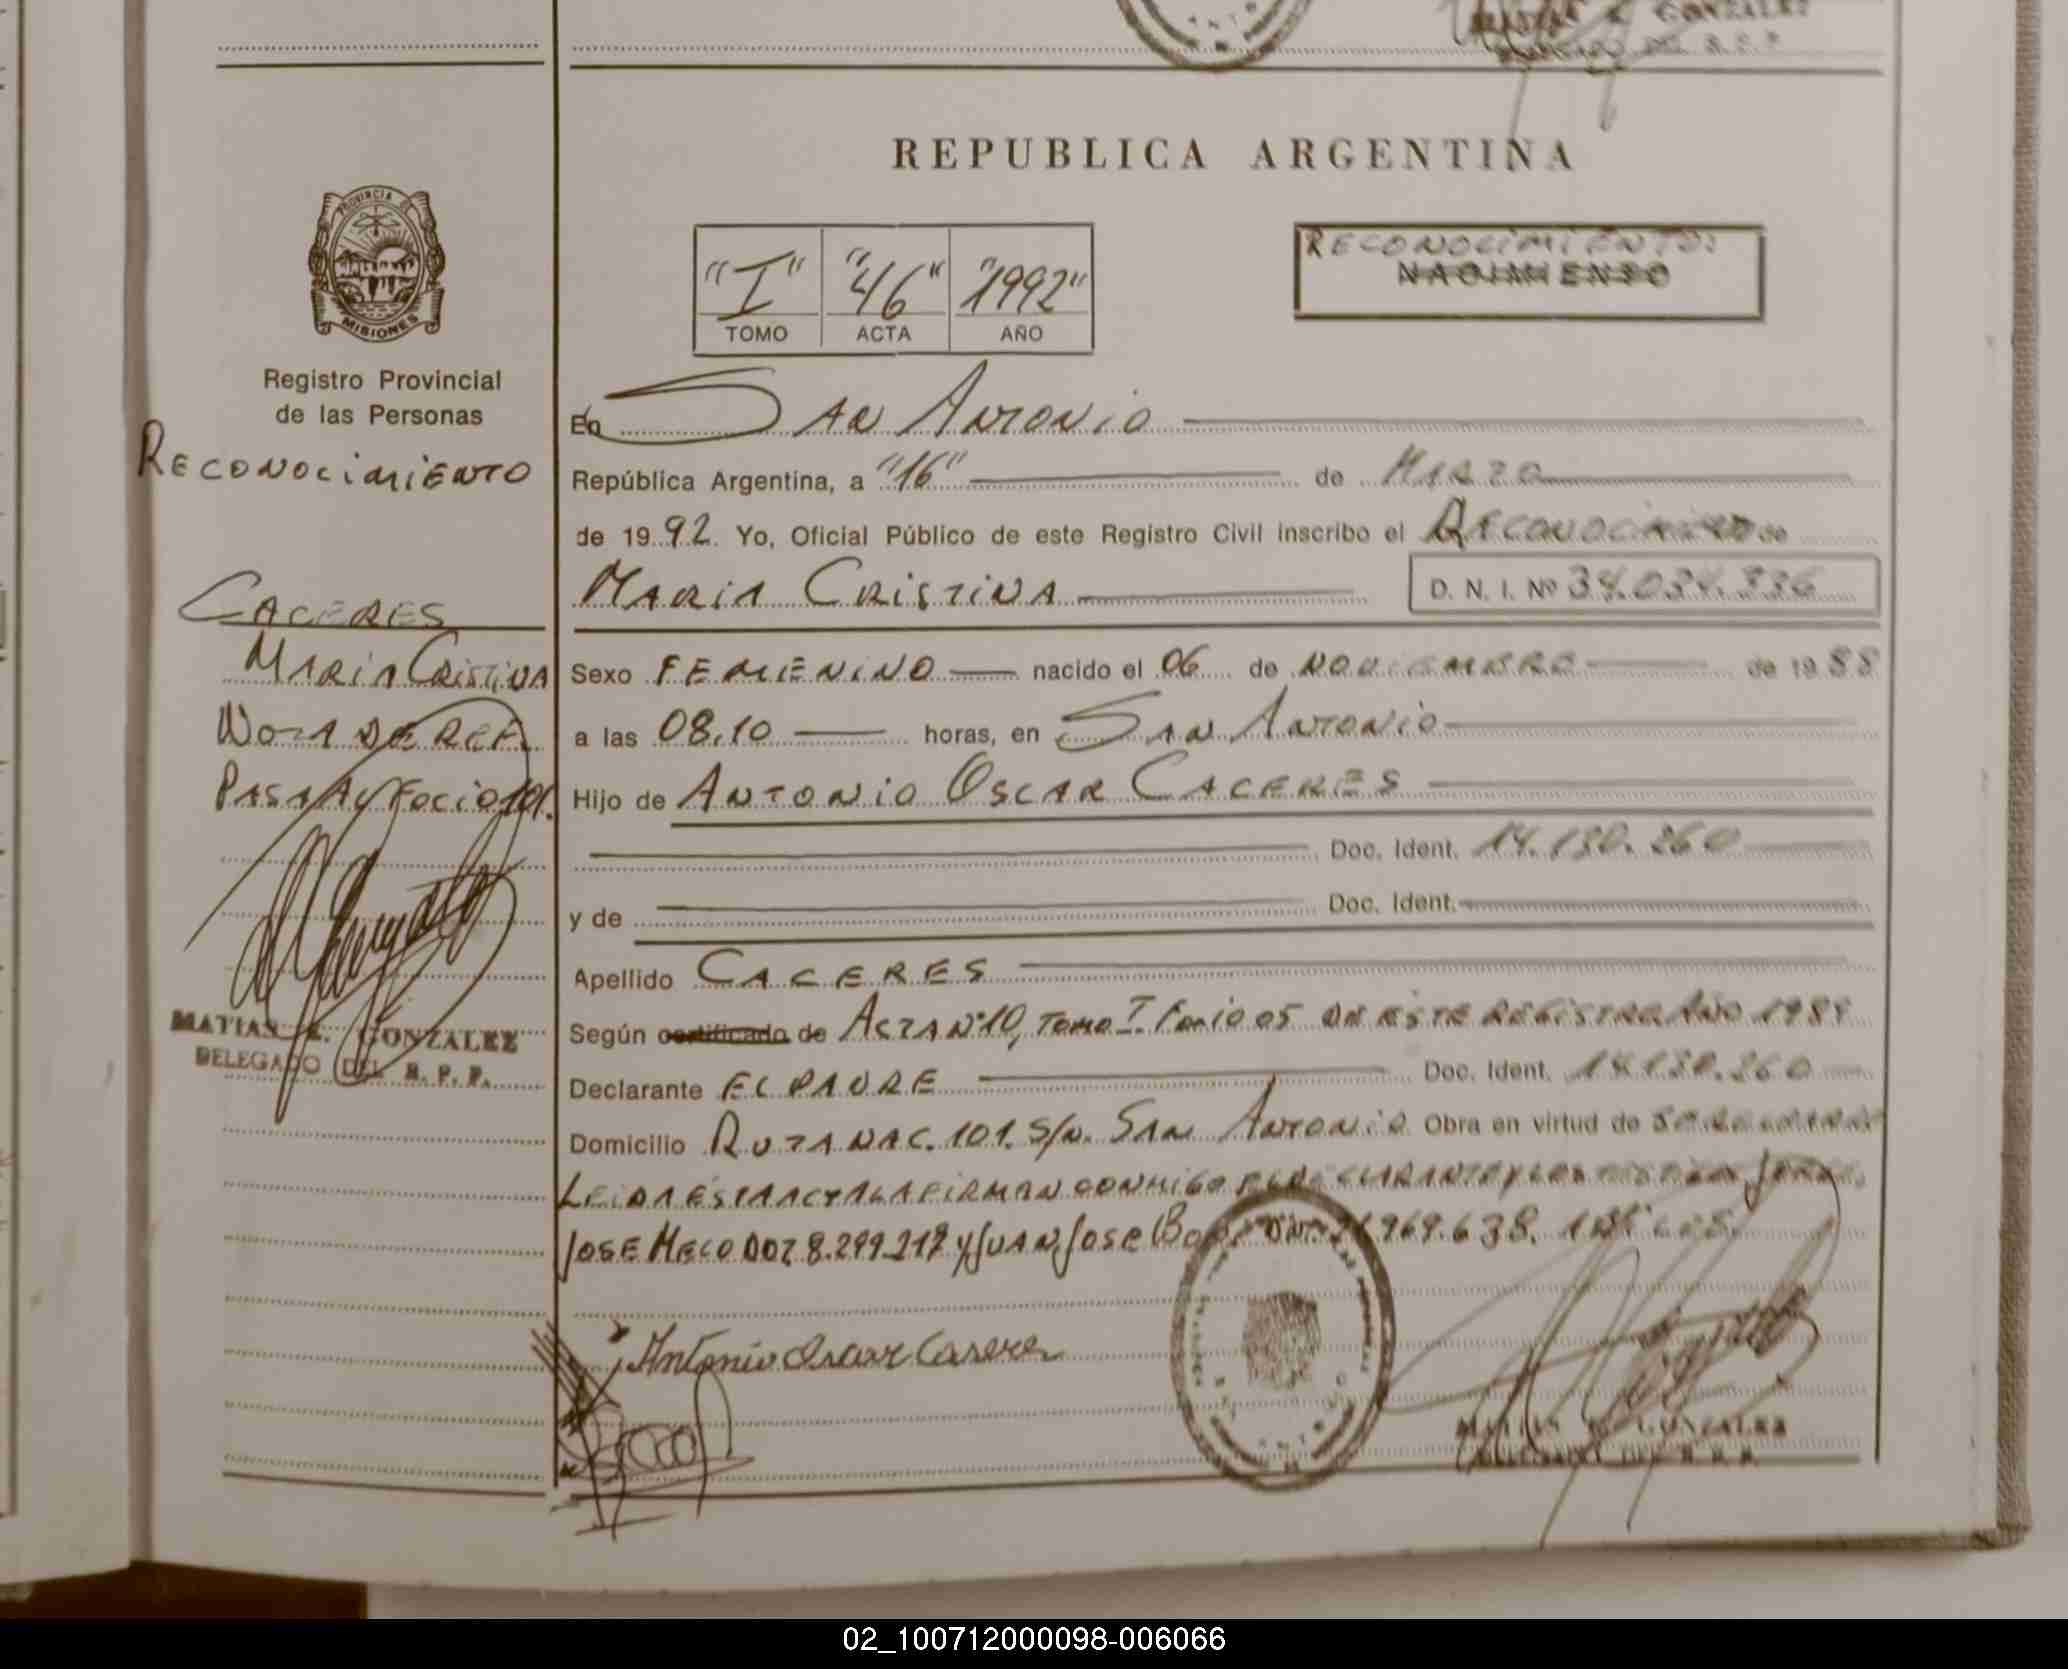 GONZALEZ
REPUBLICA ARGENTINA
PROVINCIA DE
MISIONES
Registro Provincial
de las Personas
RECONOCIMIENTO
CACERES
MARIA CRISTINA
NOTA DE REF.
PASA A FOLIO 101.
MATIAS E. GONZALEZ
DELEGADO DEL R. P. P.
"I" "46" "1992"
TOMO ACTA AÑO
RECONOCIMIENTO:
NACIMIENTO
En SAN ANTONIO
República Argentina, a "16" de MARZO
de 1992 Yo, Oficial Público de este Registro Civil inscribo el RECONOCIMIENTO de
MARIA CRISTINA D. N. I. Nº 34.034.336
Sexo FEMENINO nacido el 06 de NOVIEMBRE de 1988
a las 08,10 horas, en SAN ANTONIO
Hijo de ANTONIO OSCAR CACERES
Doc. Ident. 14.130.260
y de Doc. Ident.
Apellido CACERES
Según certificado de ACTA Nº 10, TOMO I FOLIO 05 DE ESTE REGISTRO AÑO 1989
Declarante EL PADRE Doc. Ident. 14.130.260
Domicilio RUTA NAC. 101. S/N. SAN ANTONIO Obra en virtud de
LEIDA ESTA ACTA LA FIRMAN CONMIGO EL DECLARANTE Y LOS TESTIGOS JORGE
JOSE MELO DOZ 8.299.217 Y JUAN JOSE DNI 21.969.638.
Antonio Oscar Caseres
MATIAS E. GONZALEZ
DELEGADO DEL R. P. P.
02_100712000098-006066